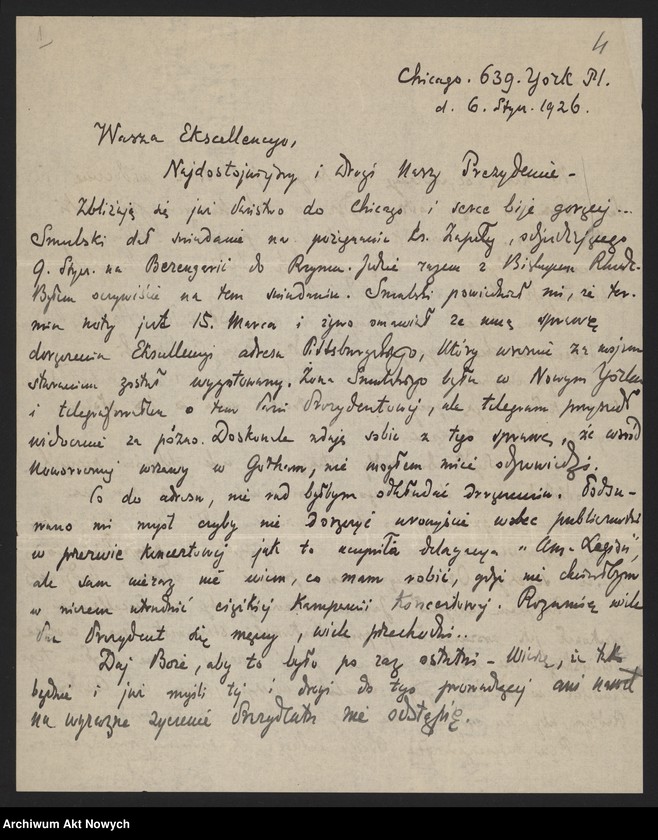 4
Chicago. 639. York Pl.
d. 6. Stycz. 1926.
Wasza Ekscellencyo,
Najdostojniejszy i Drogi Nasz Prezydencie -
Zbliżają się już Państwo do Chicago i serce bije goręcej...
Smulski dał śniadanie na pożegnanie ks. Zapały, odjeżdżającego
9. Stycz. na Berengarii do Rzymu. Jedzie razem z Biskupem Rhode.
Byłem oczywiście na tem śniadaniu. Smulski powiedział mi, że ter-
min noty jest 15. Marca i żywo omawiał ze mną sprawę
doręczenia Ekscellencyi adresu Pittsburgskiego, który wreszcie za mojem
staraniem został wygotowany. Żona Smulskiego była w Nowym Yorku
i telegrafowałem o tem Pani Prezydentowej, ale telegram przyszedł
widocznie za późno. Doskonale zdaję sobie z tego sprawę, że wśród
noworocznej wrzawy w Gotham, nie mogłem mieć odpowiedzi.
Co do adresu, nie rad byłbym odkładać doręczenia. Podsu-
wano mi myśl czyby nie doręczyć uroczyście wobec publiczności
w przerwie koncertowej jak to uczyniła delegacya "Am-Legion",
ale sam nieraz nie wiem, co mam robić, gdyż nie chciałbym
w niczem utrudnić ciężkiej Kampanii Koncertowej. Rozumię wiele
Pan Prezydent się męczy, wiele przechodzi..
Daj Boże, aby to było po raz ostatni - Wierzę, że tak
będzie i już myśli tej i drogi do tego prowadzącej ani nawet
na wyraźne życzenie Prezydenta nie odstąpię.
Archiwum Akt Nowych